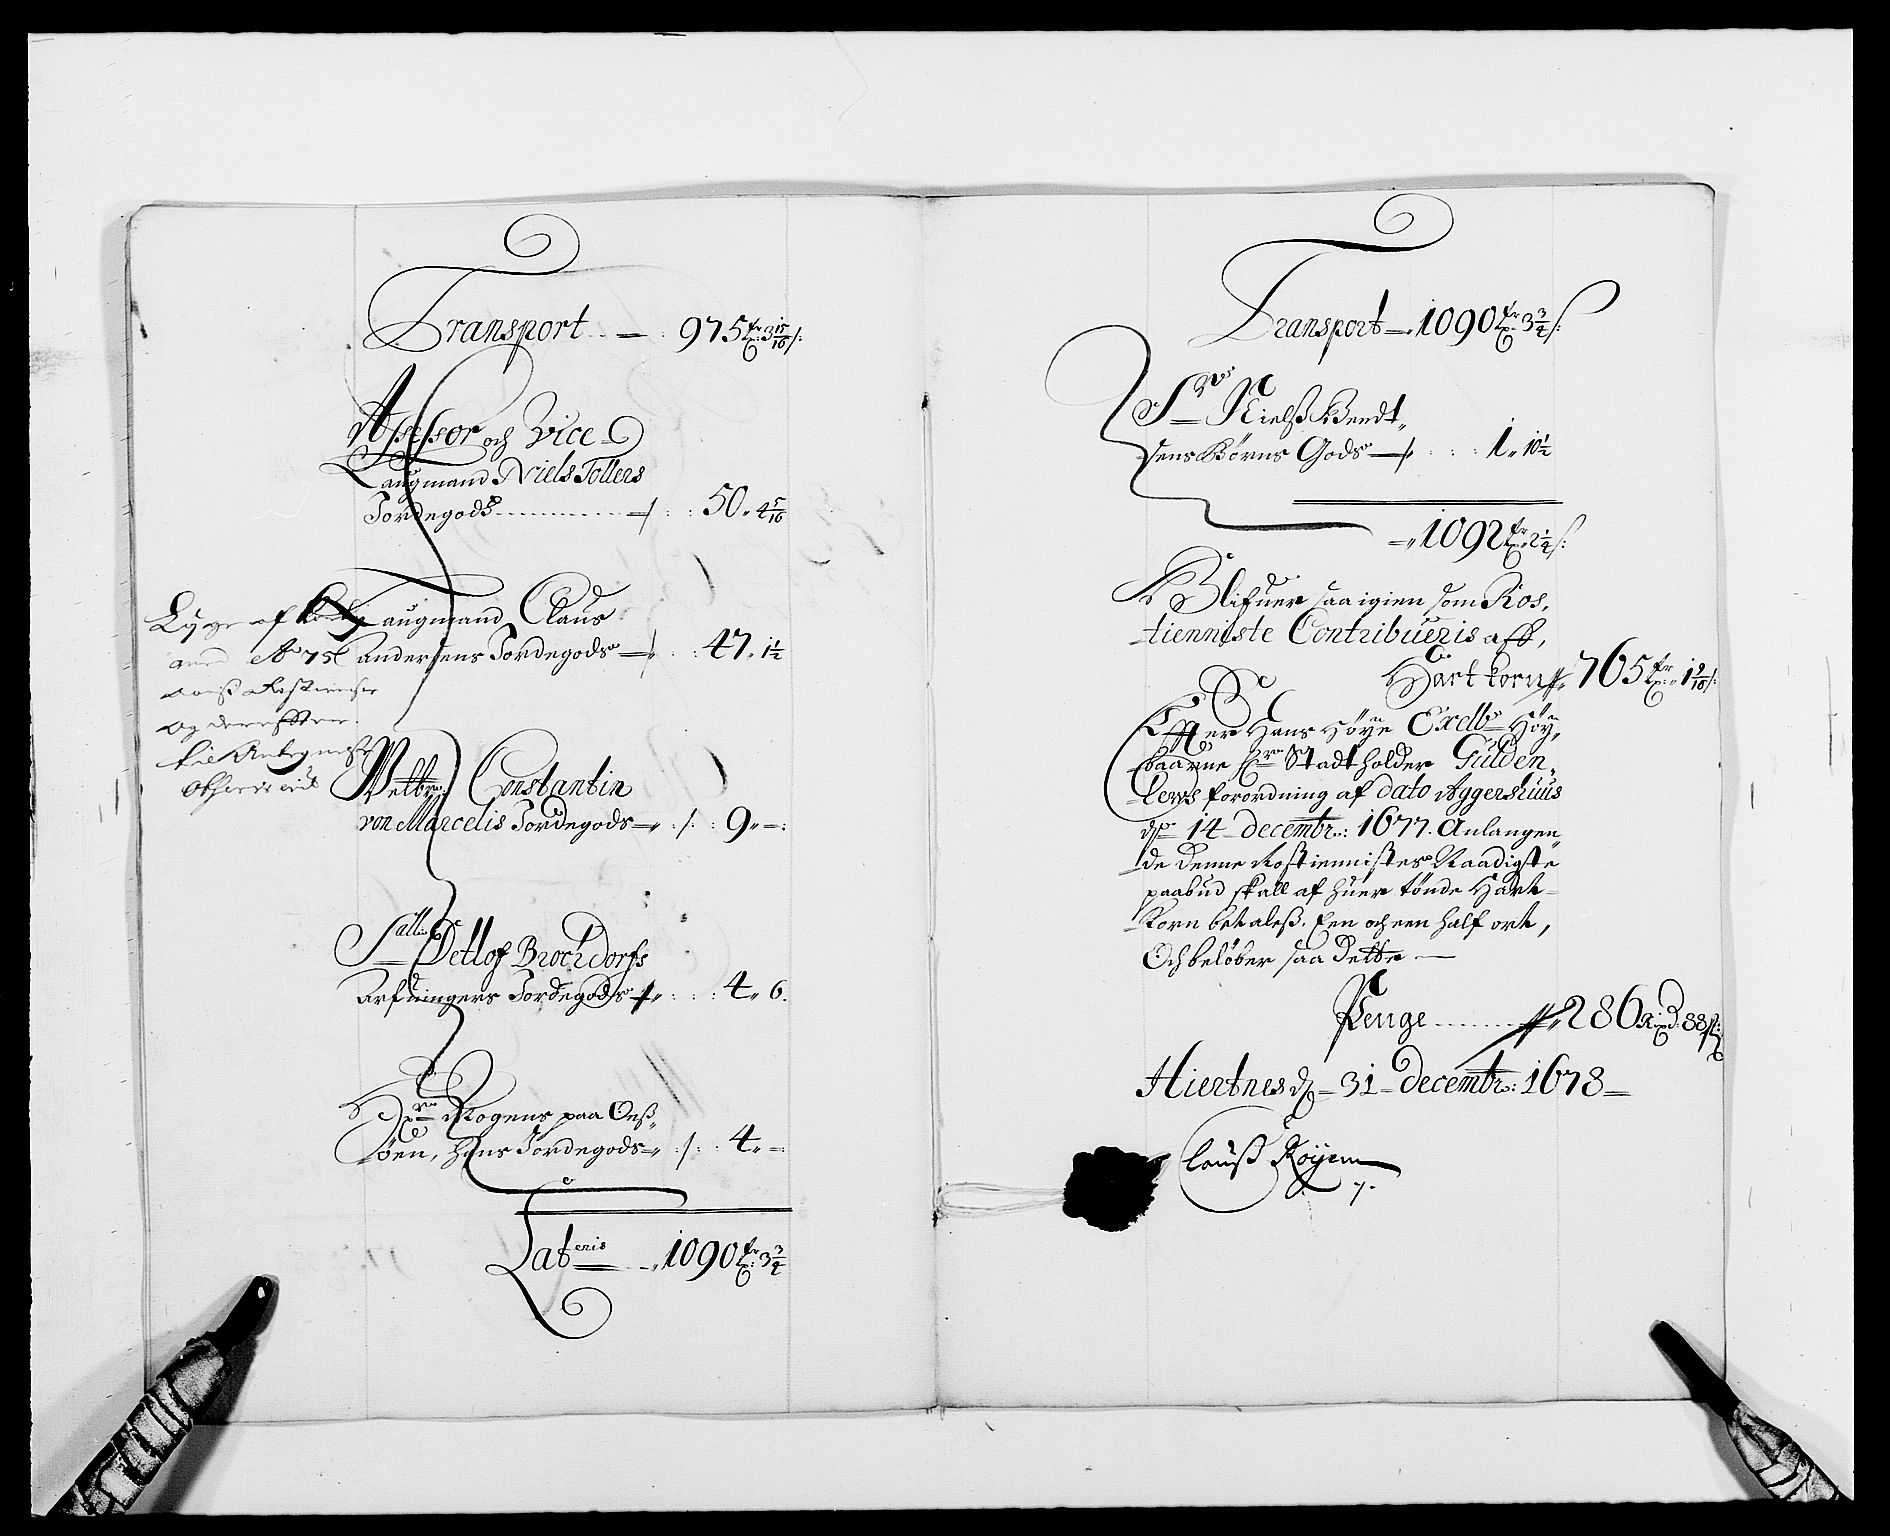 Transport - 975 tr: 3 15/16 s:
Assessor och Vice
Laugmand Niels Tollers
Jordegods 50. 4 5/16
Laugmand Claus
Andersens Jordegods 47. 1 1/2
Velbr: Constantin
von Marcelis Jordegods 9. -
Lyge af
No 75
og dereffter
Sall: Detlof Brochdorfs
Arfuingers Jordegods 4. 6.
Hr Mogens paa Oeß
øen, hans Jordegods 4. -
Lateris 1090 tr: 3 3/4
Transport 1090 tr: 3 3/4 s:
Sr Nielß Bendt
sens Børns Gods 1. 10 1/2
1092 tr: 2 1/4 s:
Blifuer saa igien som Ros,
tienniste Contribueris aff,
Hart korn 765 tr: 1 9/16 s:
Effter Hans Høye Excells Høy,
baarne Hr Stadtholder Gülden
lews forordning af dato Aggershuus
d 14 decembr: 1677. Anlangen
de denne Rostiennistes Naadigste
paabud skall af huer tønde Hart
korn betaless. Een och een half ort,
Och beløber saa dette
Penge 286 Rixd: 88 s:
Hiertnes d 31 decembr: 1678
Clauß Røyem